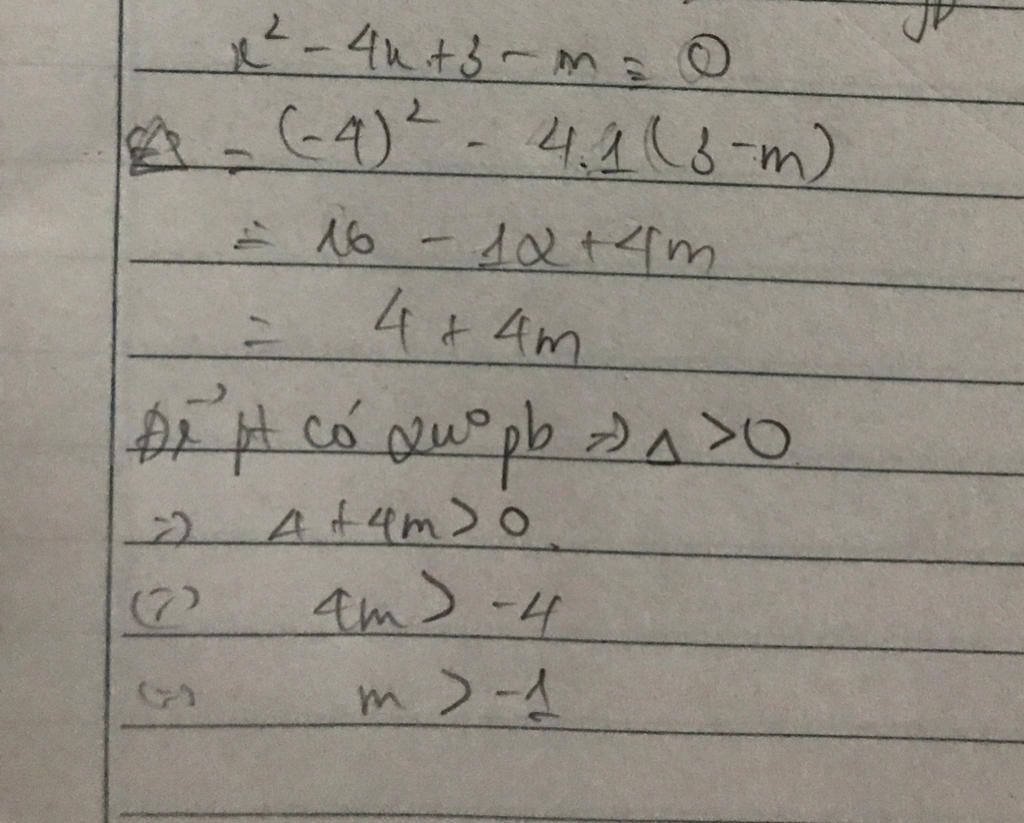 x² - 4x + 3 - m = 0
Δ = (-4)² - 4.1(3-m)
= 16 - 12 + 4m
= 4 + 4m
Để pt có 2no pb => Δ > 0
=> 4 + 4m > 0
(=) 4m > -4
(=) m > -1